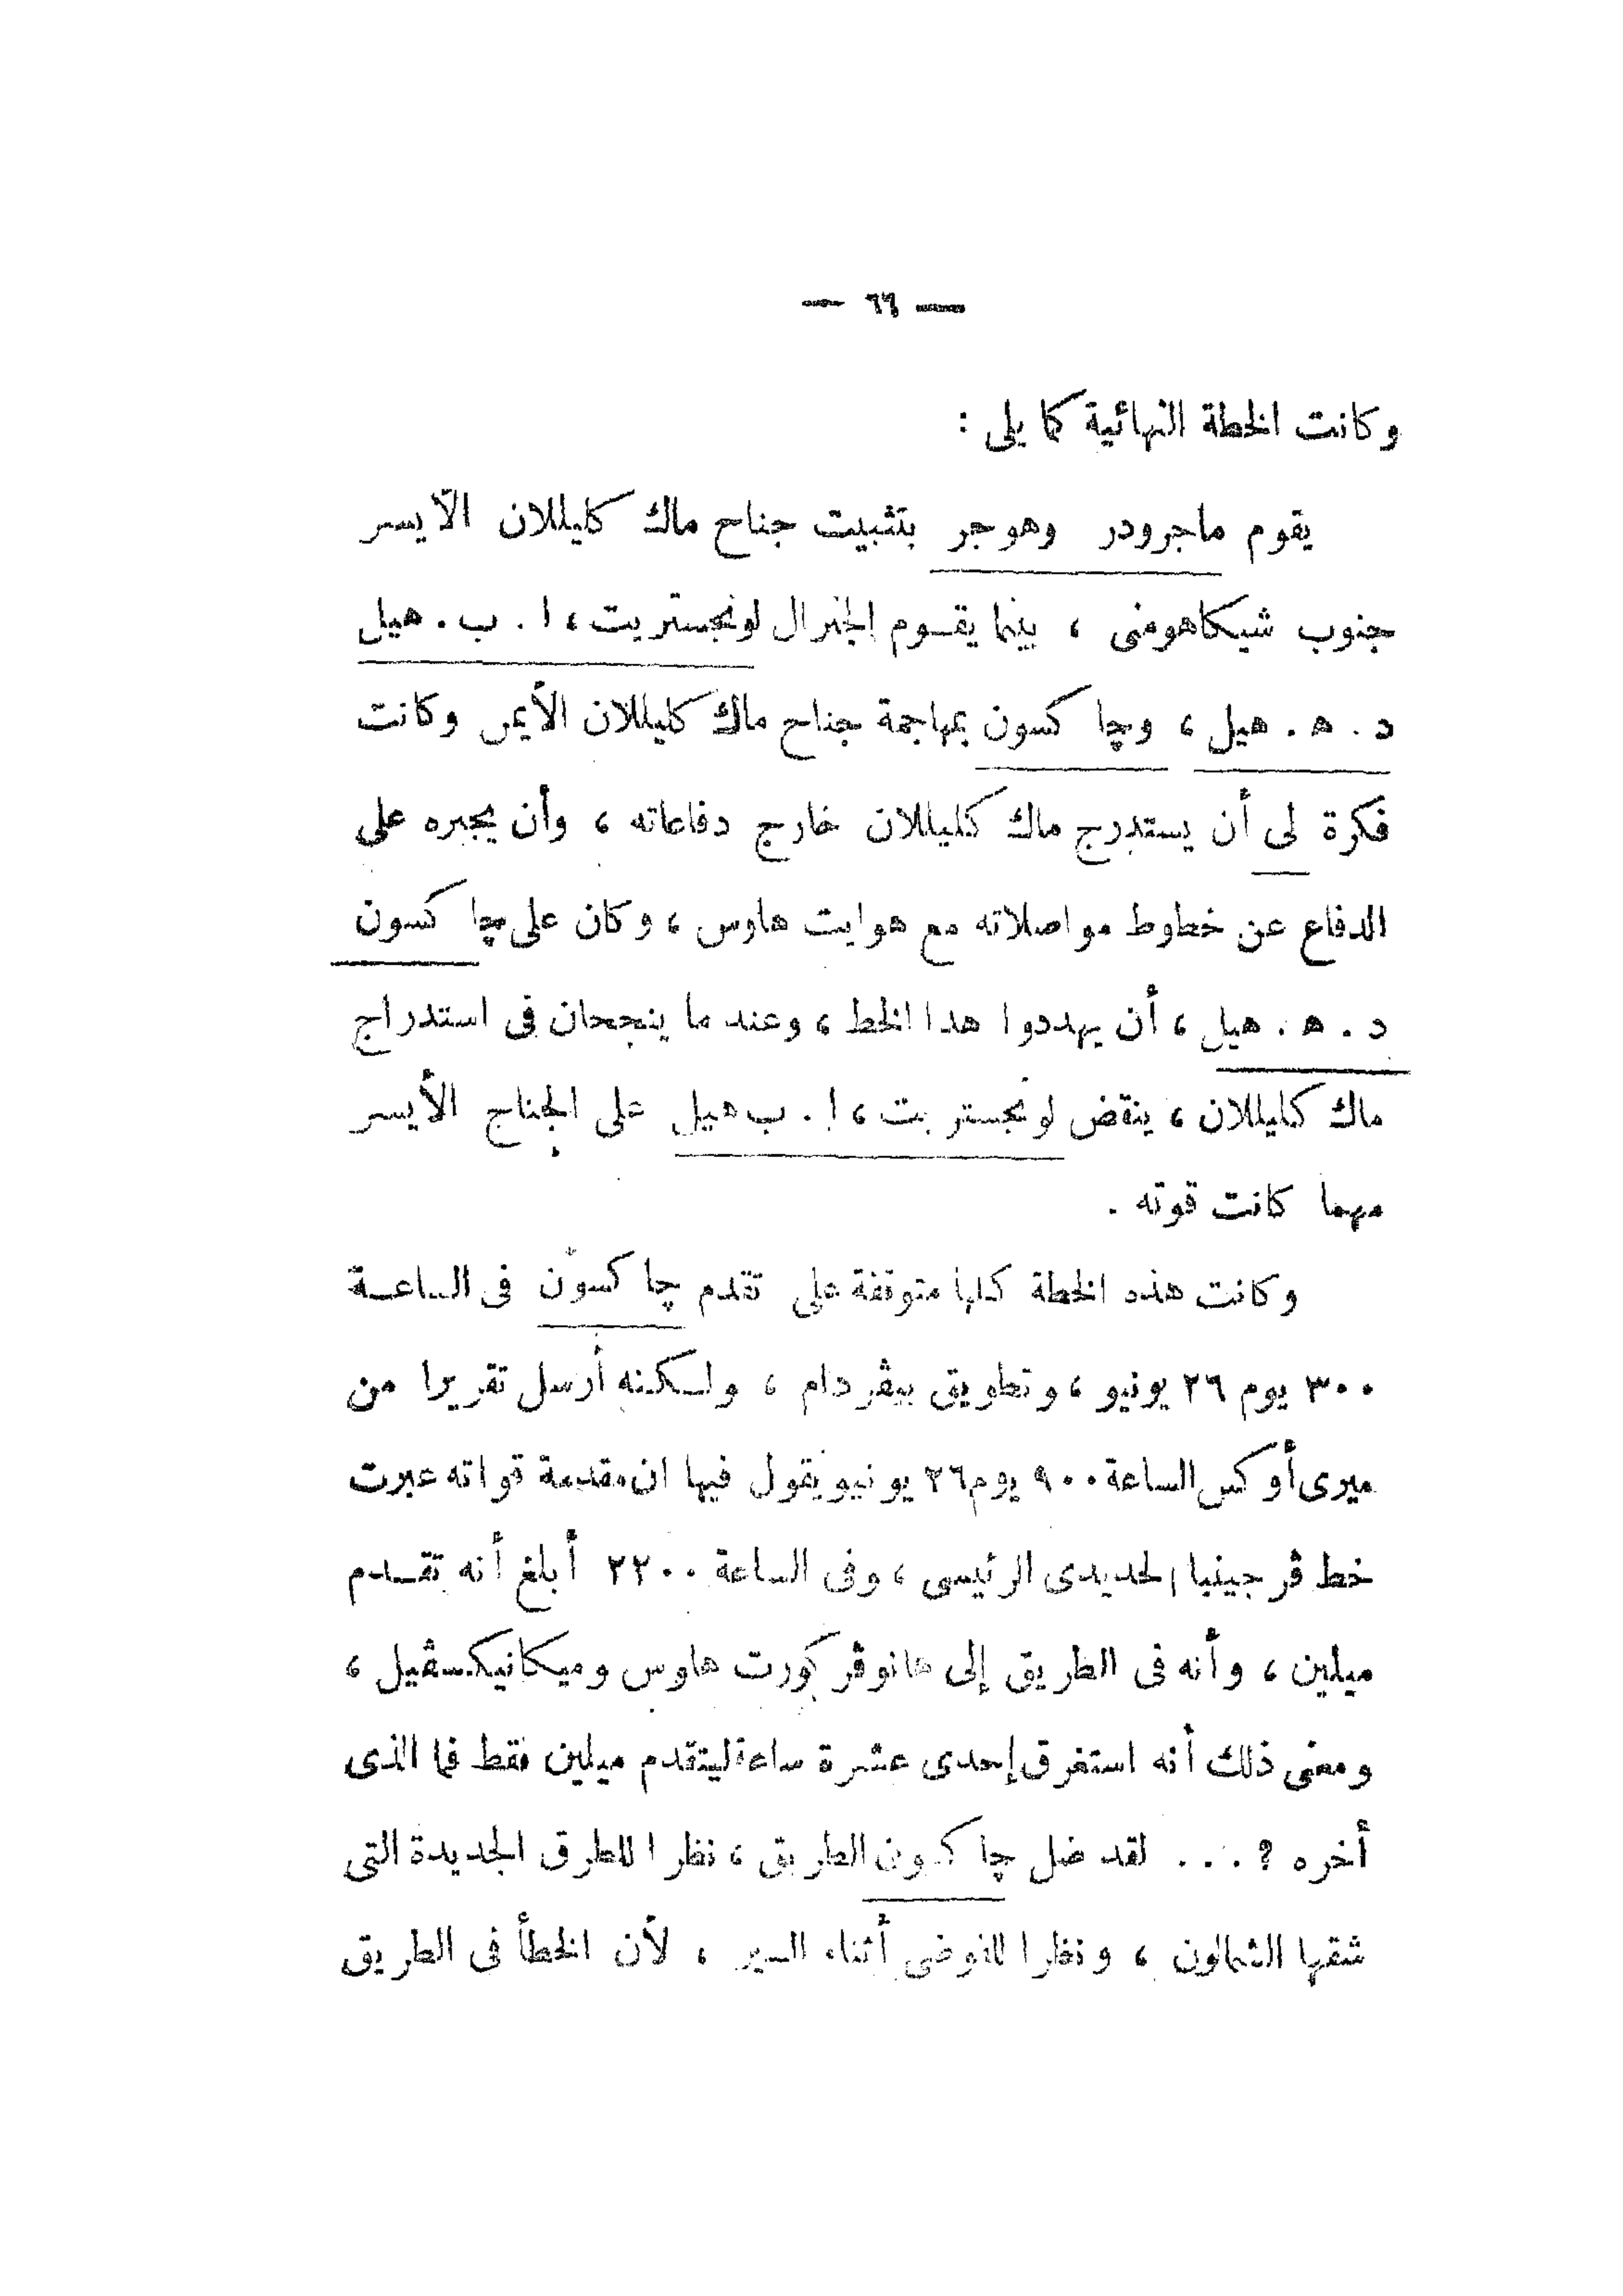 — ٦٦ —
وكانت الخطة النهائية كما يلى :
يقوم ماجرودر وهوجر بتثبيت جناح ماك كليللان الأيسر
جنوب شيكاهومنى ، بينما يقوم الجنرال لونجستريت ، ا . ب . هيل
د . ه . هيل ، وچا كسون بمهاجمة جناح ماك كليللان الأيمن وكانت
فكرة لى أن يستدرج ماك كليللان خارج دفاعاته ، وأن يجبره على
الدفاع عن خطوط مواصلاته مع هوايت هاوس ، وكان على چا كسون
د . ه . هيل ، أن يهددوا هدا الخط ، وعند ما ينجحان فى استدراج
ماك كليللان ، ينقض لونجستريت ، ا . ب هيل على الجناح الأيسر
مهما كانت قوته .
وكانت هذه الخطة كلها متوقفة على تقدم چا كسون فى الساعة
٣٠٠ يوم ٢٦ يونيو ، وتطويق بيڤر دام ، ولكنه أرسل تقريرا من
ميرى أوكس الساعة ٩٠٠ يوم ٢٦ يونيو يقول فيها ان مقدمة قواته عبرت
خط ڤرجينيا الحديدى الرئيسى ، وفى الساعة ٢٢٠٠ أبلغ أنه تقدم
ميلين ، وأنه فى الطريق إلى هانوڤر كورت هاوس وميكانيكسڤيل ،
ومعنى ذلك أنه استغرق إحدى عشرة ساعة ليتقدم ميلين فقط فما الذى
أخره ؟ . . . لقد ضل چا كسون الطريق ، نظرا للطرق الجديدة التى
شقها الشمالون ، ونظرا للفوضى أثناء السير ، لأن الخطأ فى الطريق